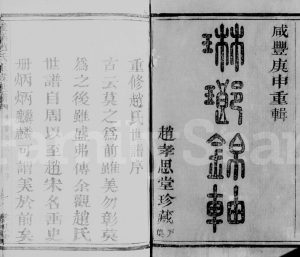 咸豐庚申重輯
琳瑯錦軸
趙孝思堂珍藏
重修趙氏世譜序
古云莫之為前雖美勿彰莫
為之後雖盛弗傳余觀趙氏
世譜自周以至趙宋名画史
冊炳炳麟麟可謂美於前矣